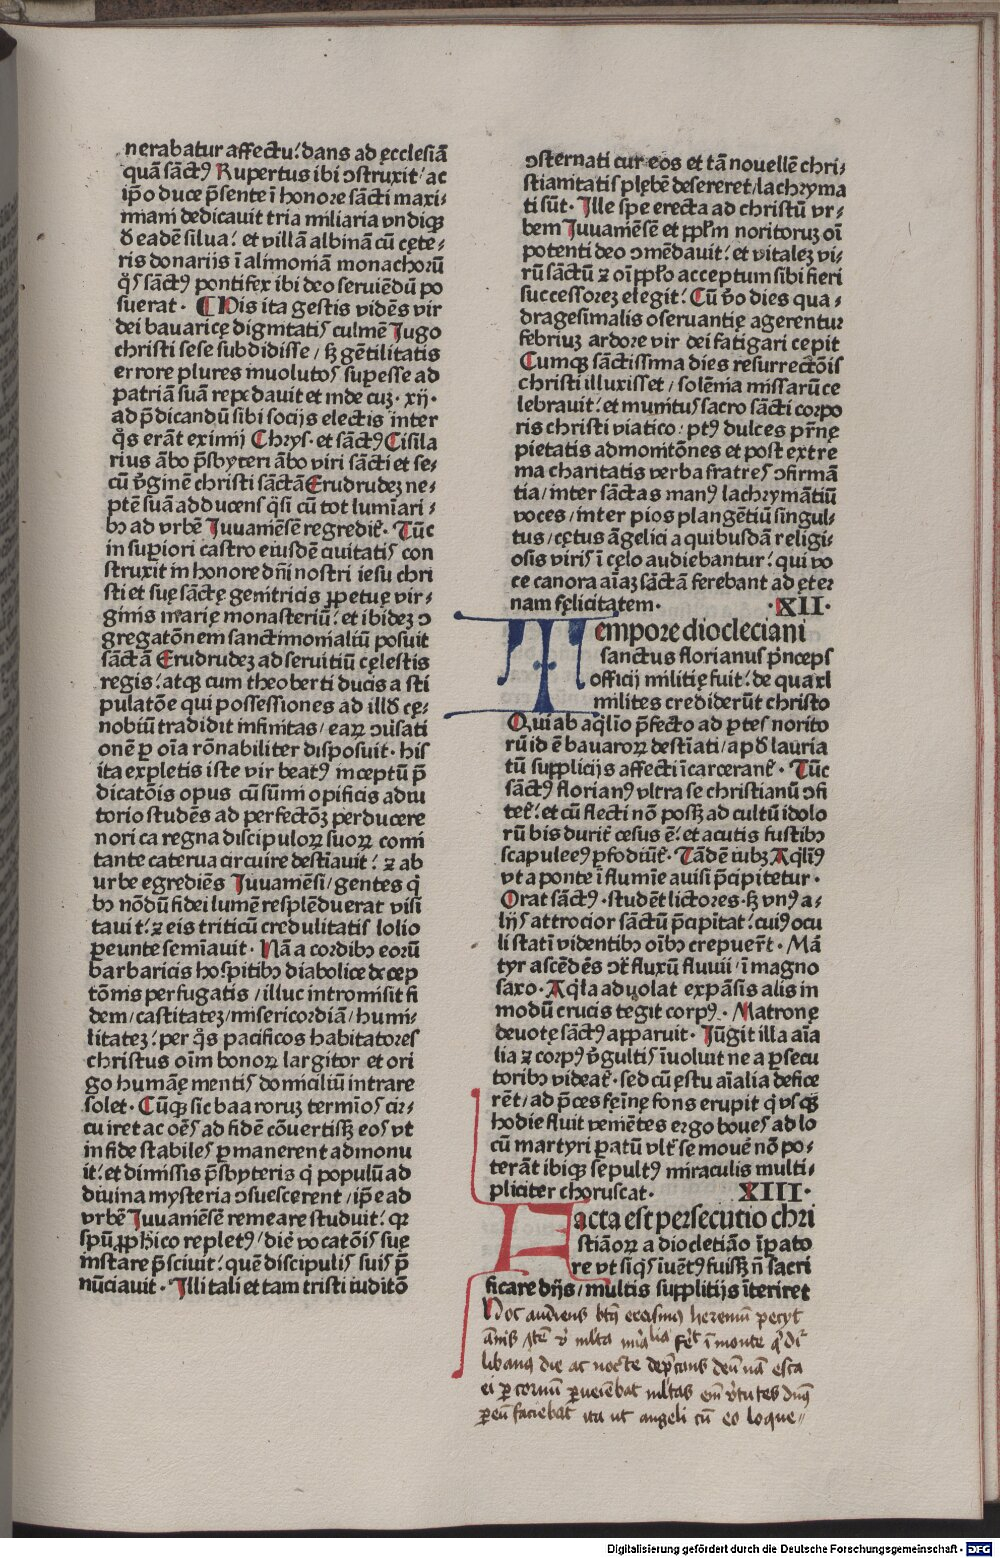 nerabatur affectu: dans ad ęcclesiā
quā sāctꝰ Rupertus ibi ↄstruxit / ac
ip̄o duce p̄sente ī honore sācti maxi⸗
miani dedicavit tria miliaria vndiqꝫ
đ eadē silua: et villā albinā cū cęte⸗
ris donarijs ī alimoniā monachorū
qͦs sāctꝰ pontifex ibi deo serviēdū po
suerat · ¶ His ita gestis vidēs vir
dei bavaricę dignitatis culmē Jugo
christi sese subdidisse / sꝫ gētilitatis
errore plures īnuolutos superesse ad
patriā suā repedavit et inde cuꝫ · xij ·
ad p̄dicandū sibi socijs electis inter
qͦs erāt eximij Chrys · et sāctꝰ Cisila
rius ābo p̄sbyteri ābo viri sācti et se⸗
cū v̄ginē christi sāctā Erudrudeꝫ ne⸗
ptē suā adducens qͣsi cū tot lumīari ⸗
bꝫ ad vrbē Juvamēsē regredit̄ · Tūc
in superiori castro eiusdē civitatis con
struxit in honore dn̄i nostri iesu chri
sti et suę sāctę genitricis ꝓpetuę vir⸗
ginis marię monasteriū: et ibideꝫ ↄ
gregatōnem sanctimonialiū posuit
sāctā Erudrudeꝫ ad servitiū cęlestis
regis: atqꝫ cum theoberti ducis a sti
pulatōe qui possessiones ad illđ cę⸗
nobiū tradidit infinitas / eaꝝ ↄūsati
onē ꝑ oīa rōnabiliter disposuit · his
ita expletis iste vir beatꝰ inceptū p̄
dicatōis opus cū sūmi opificis adiu
torio studēs ad perfectōꝫ perducere
norica regna discipuloꝝ suoꝝ comi
tante caterua circuire destīauit: ꝛ ab
urbe egrediēs Juvamēsi / gentes qͥ
bꝫ nōdū fidei lumē resplēduerat visi
tavit: ꝛ eis triticū credulitatis lolio
pereunte semīauit · Nā a cordibꝫ eorū
barbaricis hospitibꝫ diabolicę decep
tōnis perfugatis / illuc intromisit fi
dem / castitateꝫ / misericordiā / humi⸗
litateꝫ: per qͦs pacificos habitatores
christus oīm bonoꝝ largitor et ori
go humanę mentis domiciliū intrare
solet · Cūqꝫ sic baaroruꝫ termīos cir⸗
cuiret ac oēs ad fidē cōuertisꝫ eos vt
in fide stabiles permanerent admonu
it: et dimissis p̄sbyteris qͥ populū ad
divina mysteria ↄsuescerent / ip̄e ad
vrbē Juvamēsē remeare studuit: qꝛ
spū ꝓphico repletꝰ / diē vocatōis suę
instare p̄sciuit: quē discipulis suis p̄
nūciauit · Illi tali et tam tristi iuditō
ↄsternati cur eos et tā novellē chri⸗
stianitatis plębē desereret / lachryma
ti sūt · Ille spe erecta ad christū vr⸗
bem Juvamēsē et ppl̄m noritoruꝫ oī
potenti deo ↄmēdavit: et vitaleꝫ vi⸗
rū sāctū ꝛ oī ppl̄o acceptum sibi fieri
successoreꝫ elegit: Cū v̄o dies qua⸗
dragesimalis oservantię agerentur
febriuꝫ ardore vir dei fatigari cepit
Cumqꝫ sāctissima dies resurrectōis
christi illuxisset / solēnia missarū ce
lebrauit: et munitus sacro sācti corpo
ris christi viatico: ptꝰ dulces pr̄nę
pietatis admonitōnes et post extre
ma charitatis verba fratres ↄfirmā
tia / inter sāctas manꝰ lachrymātiū
voces / inter pios plangētiū singul⸗
tus / cętus āgelici a quibusdā religi⸗
osis viris ī cęlo audiebantur: qui vo
ce canora aīaꝫ sāctā ferebant ad ęter
nam fęlicitatem · · XII ·
Tempore diocleciani
sanctus florianus p̄nceps
officij militię fuit: de qua xl
milites crediderūt christo
Qui ab aqͥlīo p̄fecto ad ꝑtes norito
rū id ē bavaroꝝ destīati / apđ lauria
tū supplicijs affecti īcarcerant̄ · Tūc
sāctꝰ florianꝰ vltra se christianū ↄfi
tet̄: et cū flecti nō possꝫ ad cultū idolo
rū bis durit̄ cesus ē: et acutis fustibꝫ
scapule eꝰ ꝑfodiūt̄ · Tādē iubꝫ Aqͥlīꝰ
vt a ponte ī flumīe avisi p̄cipitetur ·
Orat sāctꝰ · studēt lictores · sꝫ vnꝰ a⸗
lijs attrocior sāctū p̄cipitat: cuiꝰ ocu
li statī videntibꝫ oībꝫ crepuer̄t · Mā
tyr ascēdēs ↄt̄ fluxū fluvij / ī magno
saxo · Aqͥla advolat expāsis alis in
modū crucis tegit corpꝰ · Matronę
devotę sāctꝰ apparuit · Jūgit illa aīa
lia ꝛ corpꝰ v̄gultis īuoluit ne a ꝑsecu
toribꝫ videat̄ · sed cū ęstu aīalia defice
rēt / ad p̄ces feīnę fons erupit qͥ vsqꝫ
hodie fluit veniētes ergo boues ad lo
cū martyri paratū vlt̄ se mouē nō po⸗
terāt ibiqꝫ sepultꝰ miraculis multi⸗
pliciter choruscat · XIII ·
Facta est persecutio chri
stiāoꝝ a diocletiāo īpato
re vt siqͥs īuētꝰ fuisꝫ n̄ sacri
ficare dijs / multis supplitijs īteriret
Hoc audiens
ī monte
libanꝰ die ac nocte deū nā esca
ei ꝑ coruū
ꝑ eū faciebat ita ut angeli cū eo loque⸗
Digitalisierung gefördert durch die Deutsche Forschungsgemeinschaft - DFG